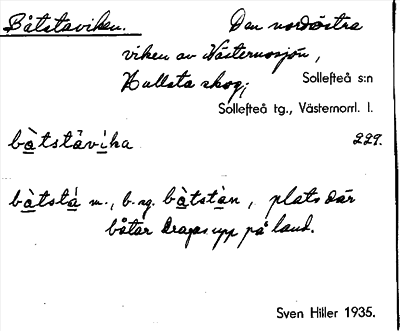 Båtstaviken. Den nordöstra
viken av Västernosjön,
Hullsta skog; Sollefteå s:n
Sollefteå tg., Västernorrl. l.
bàtstàvíka 229.
bàtstá m., b. sg. bàtstàn, plats där
båtar dragas upp på land.
Sven Hiller 1935.